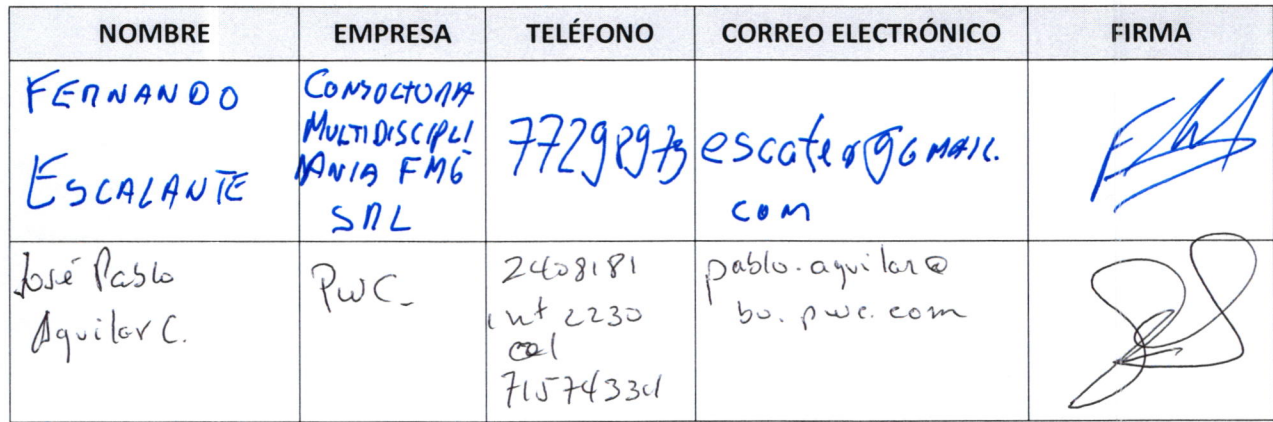 NOMBRE EMPRESA TELÉFONO CORREO ELECTRÓNICO FIRMA
FERNANDO
ESCALANTE
CONSOCTORIA
MULTIDISCIPLI
NANIA FME
SRL
77298973
escater@GMAIL.
COM
José Pablo
Aguilar C.
PwC-
2408181
int 2230
cel